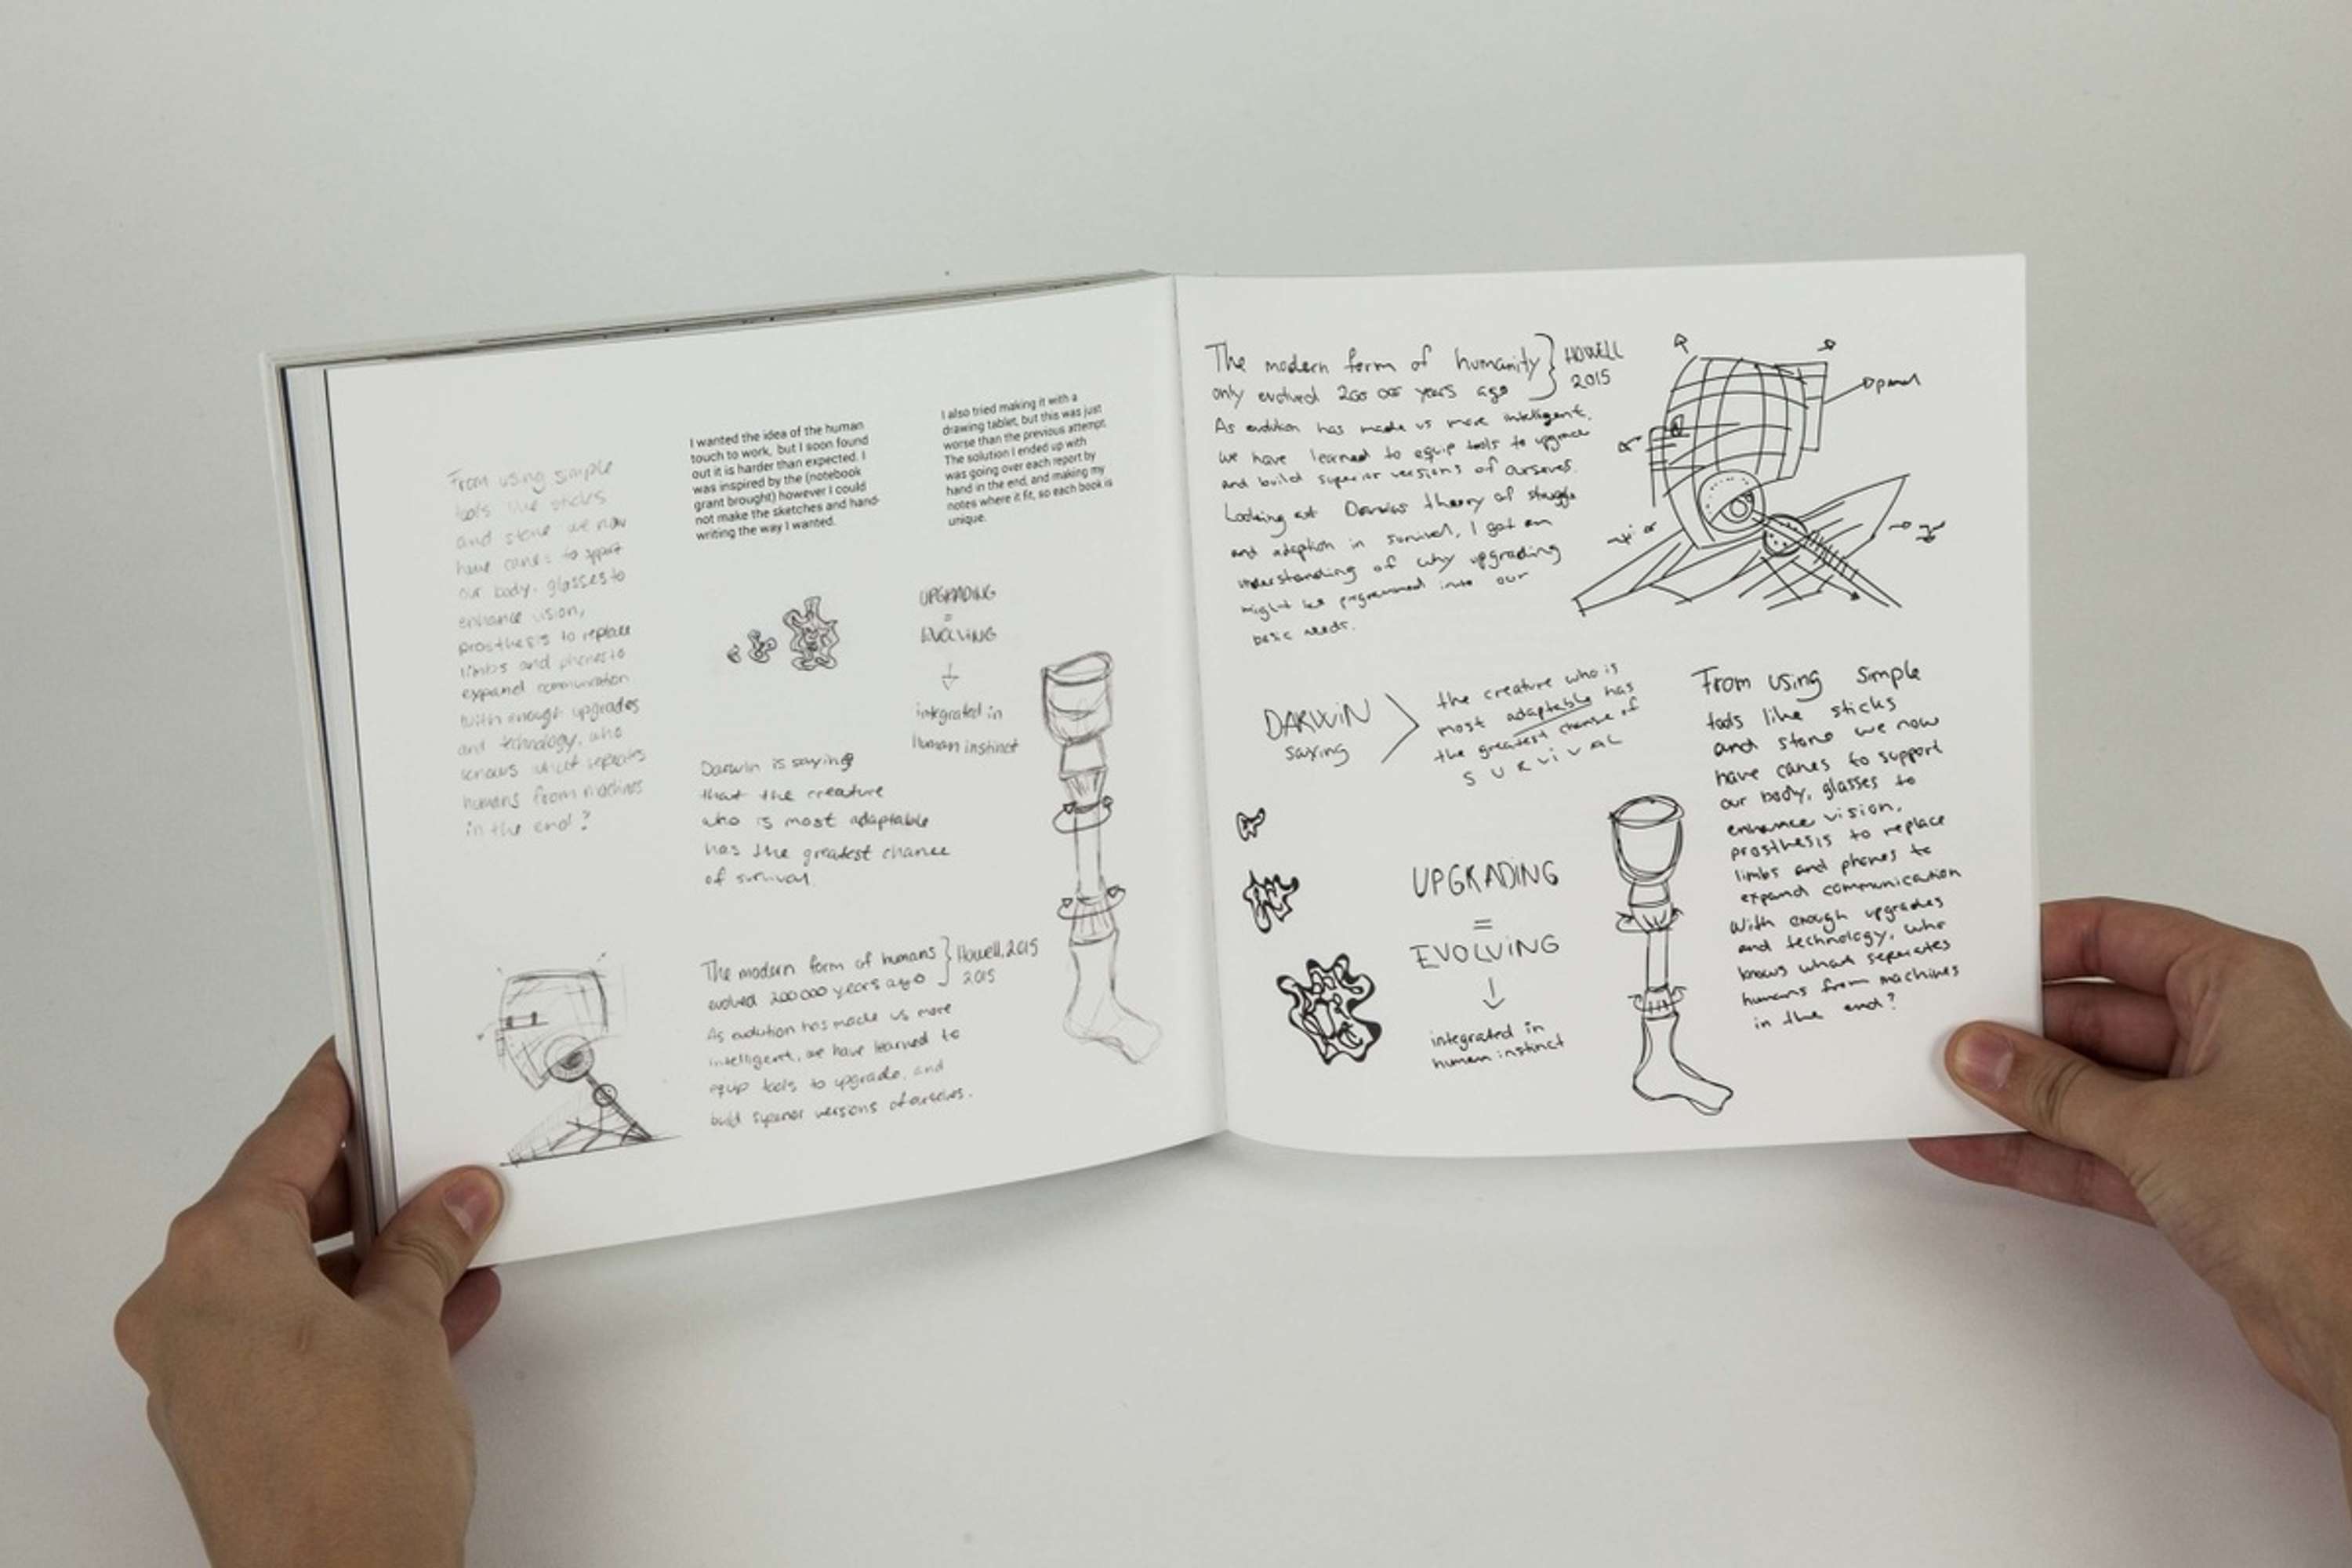 From using simple
tools like sticks
and stone we now
have canes to support
our body, glasses to
enhance vision,
prosthesis to replace
limbs and phones to
expand communication
With enough upgrades
and technology, who
knows what seperates
humans from machines
in the end?
I wanted the idea of the human
touch to work, but I soon found
out it is harder than expected. I
was inspired by the (notebook
grant brought) however I could
not make the sketches and hand-
writing the way I wanted.
I also tried making it with a
drawing tablet, but this was just
worse than the previous attempt.
The solution I ended up with
was going over each report by
hand in the end, and making my
notes where it fit, so each book is
unique.
UPGRADING
=
EVOLVING
integrated in
human instinct
Darwin is saying
that the creature
who is most adaptable
has the greatest chance
of survival
The modern form of humans
evolved 200 000 years ago
Howell, 2015
2015
As evolution has made us more
intelligent, we have learned to
equip tools to upgrade, and
build superior versions of ourselves.
The modern form of humanity
only evolved 200 000 years ago
HOWELL
2015
As evolution has made us more intelligent,
we have learned to equip tools to upgrade
and build superior versions of ourselves.
Looking at Darwins theory of struggle
and adaption in survival, I got an
understanding of why upgrading
might be programmed into our
basic needs.
panel
DARWIN
saying
the creature who is
most adaptable has
the greatest chance of
SURVIVAL
UPGRADING
=
EVOLVING
integrated in
human instinct
From using simple
tools like sticks
and stone we now
have canes to support
our body, glasses to
enhance vision,
prosthesis to replace
limbs and phones to
expand communication
With enough upgrades
and technology, who
knows what seperates
humans from machines
in the end?